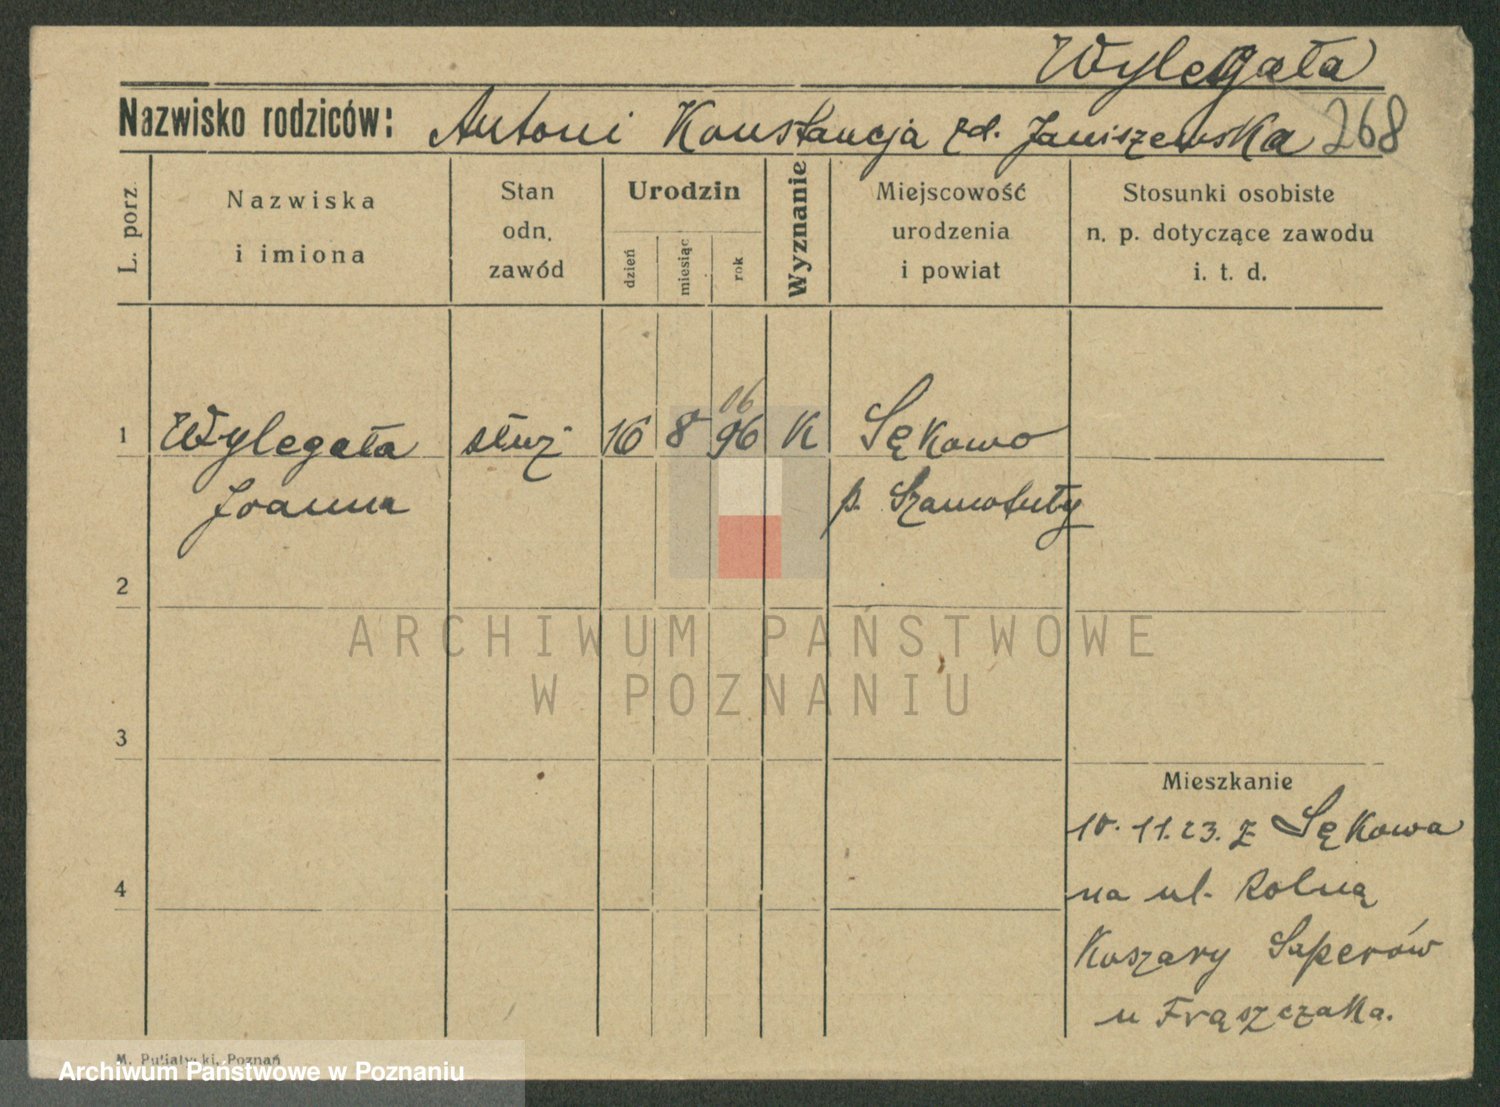 Wylegała
Nazwisko rodziców: Antoni Konstancja zd. Janiszewska 268
L. porz.
Nazwiska
i imiona
Stan
odn.
zawód
Urodzin
dzień
miesiąc
rok
Wyznanie
Miejscowość
urodzenia
i powiat
Stosunki osobiste
n. p. dotyczące zawodu
i. t. d.
06
1 Wylegała służ 16 8 96 K Sękowo
Joanna p. Szamotuły
2
ARCHIWUM PAŃSTWOWE
W POZNANIU
3
Mieszkanie
10.11.23. z Sękowa
4 na ul. Rolną
Koszary Saperów
u Frąszczaka.
M. Putiatycki, Poznań
Archiwum Państwowe w Poznaniu